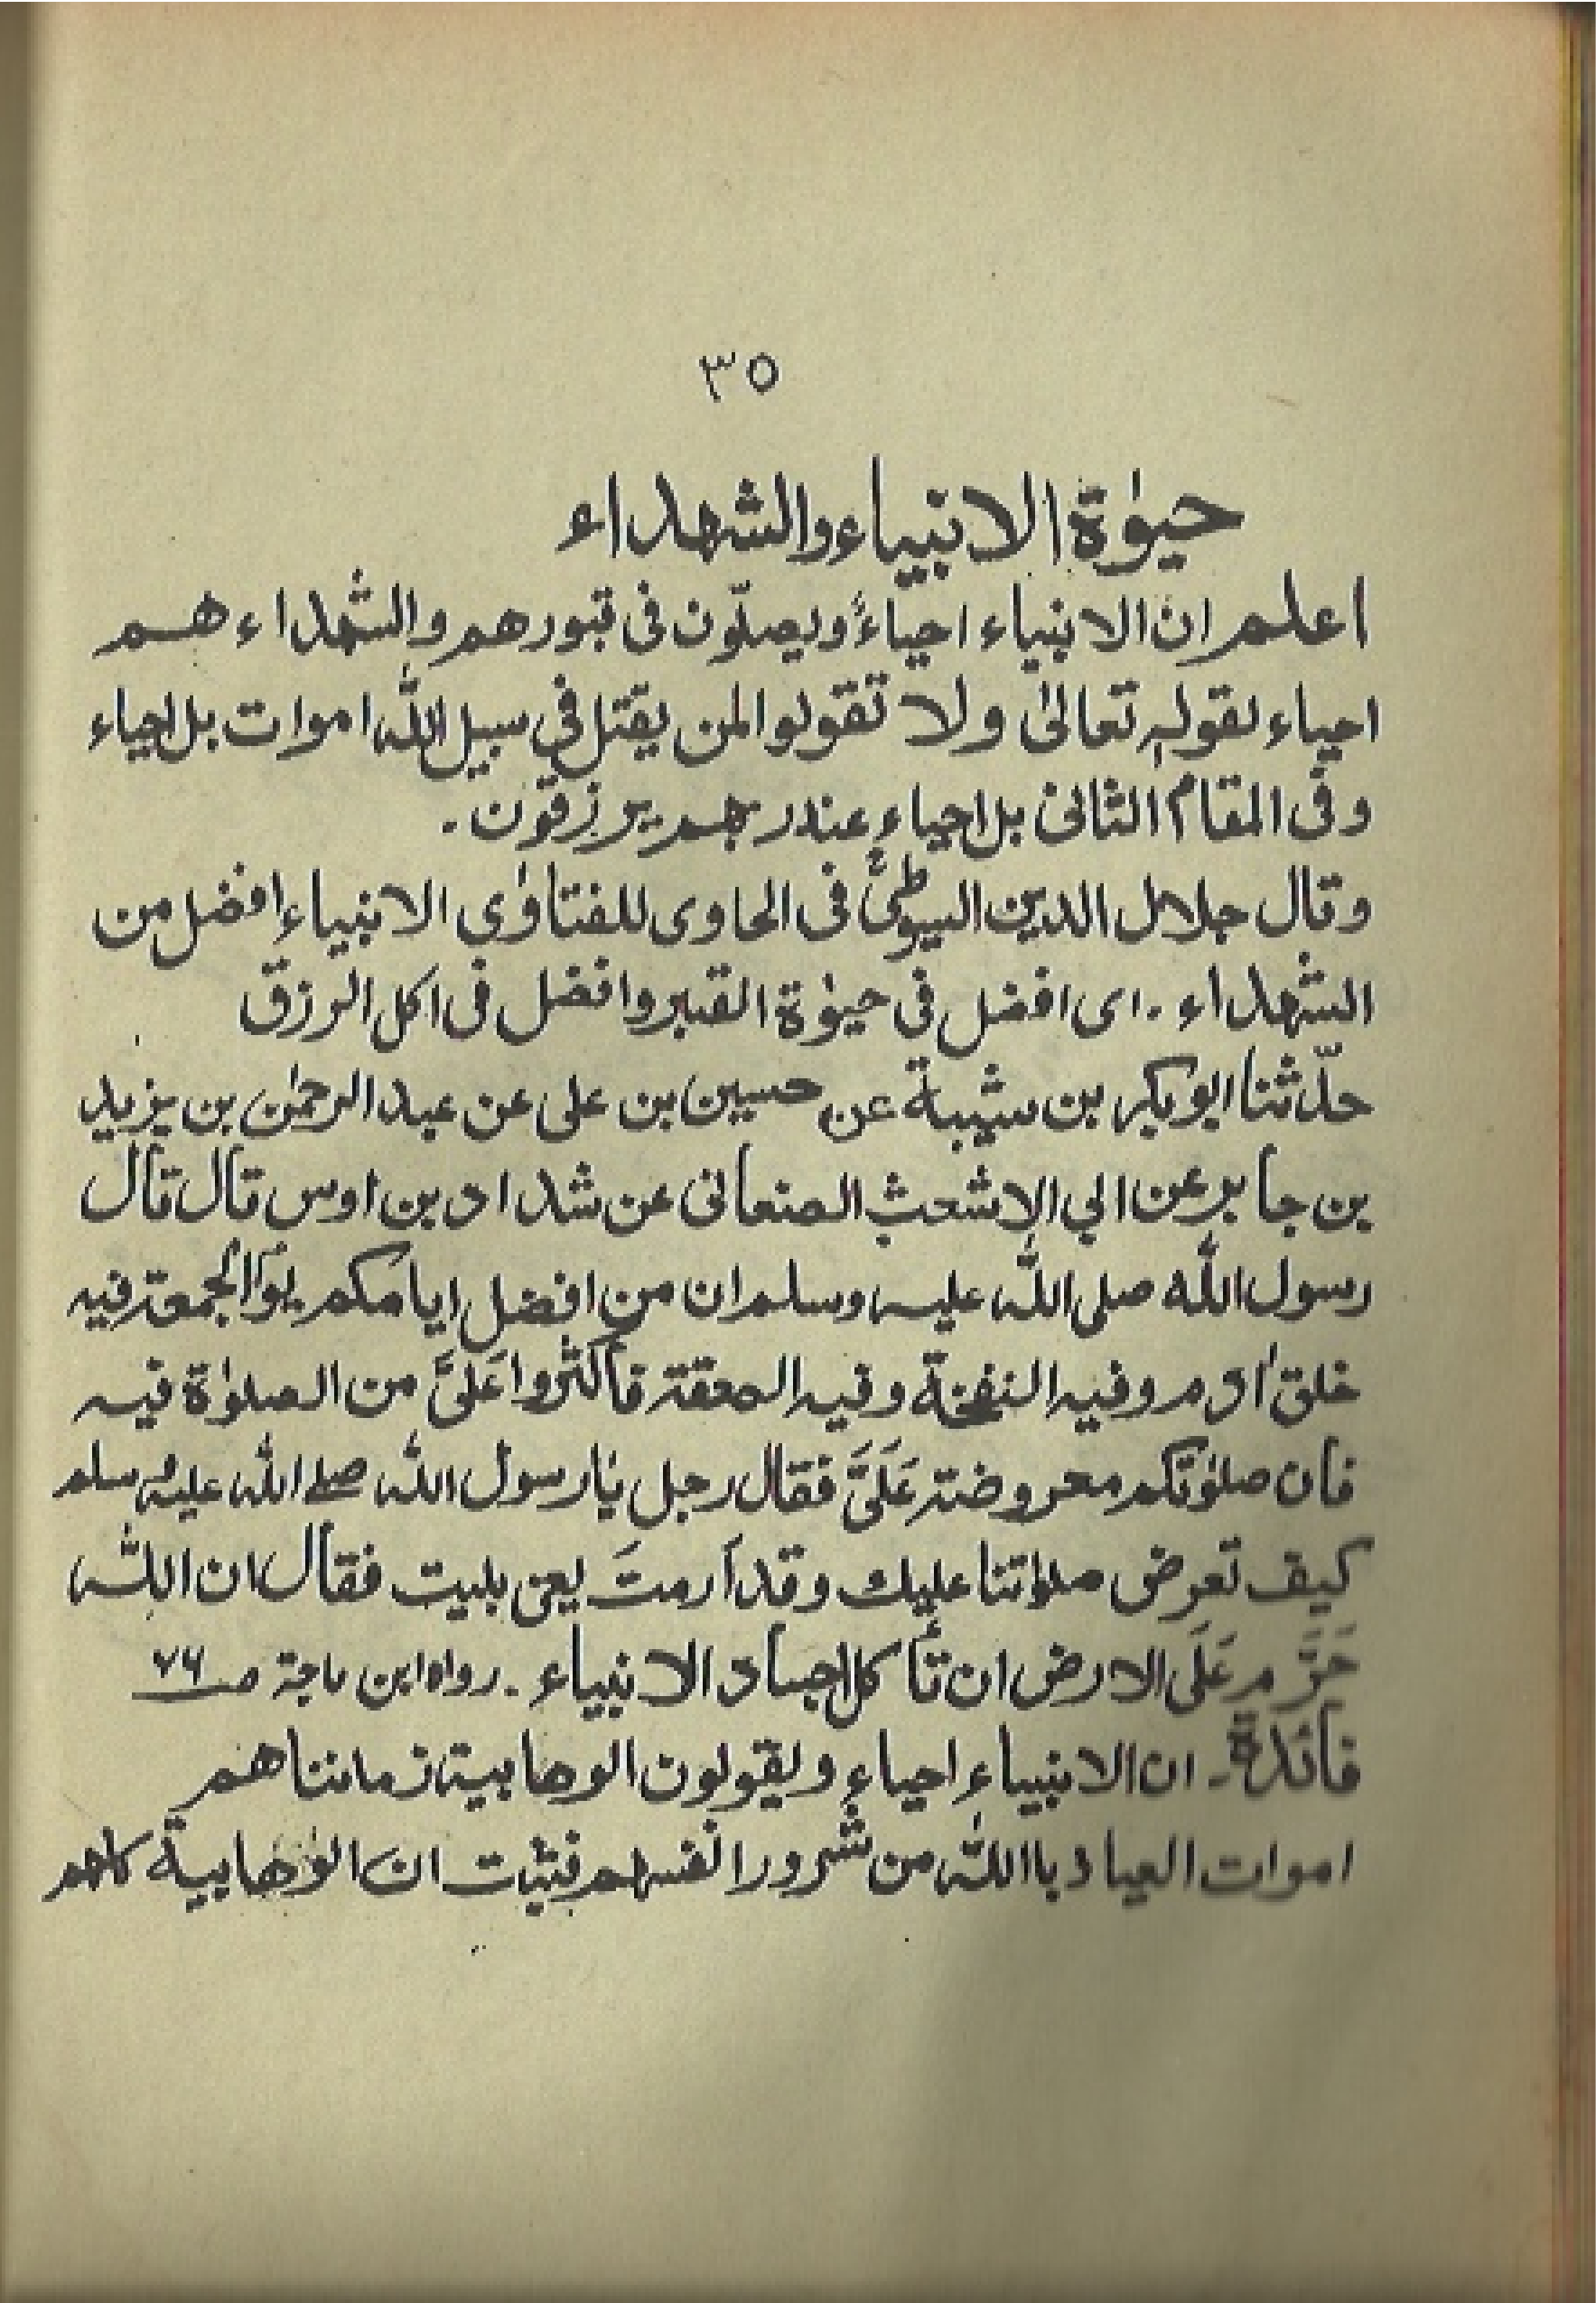 ٣٥
حيوٰة الانبياء والشهداء
اعلم ان الانبياء احياءٌ ويصلّون فى قبورهم والشهداء هم
احياء لقولہٖ تعالىٰ ولا تقولوا لمن يقتل في سبيل اللّٰه اموات بل احياء
وفى المقام الثانى بل احياء عند ربهم يرزقون.
وقال جلال الدين السيوطىؒ فى الحاوى للفتاوٰى الانبياء افضل من
الشهداء. اى افضل في حيوٰة القبر وافضل فى اكل الرزق
حدّثنا ابوبكر بن شيبة عن حسين بن على عن عبد الرحمٰن بن يزيد
بن جابر عن ابي الاشعث الصنعانى عن شداد بن اوس قال قال
رسول اللّٰه صلى اللّٰه عليه وسلم ان من افضل ايامكم يوم الجمعة فيه
خلق اٰدم وفيه النفخة وفيه الصعقة فاكثروا عَلىَّ من الصلوٰة فيه
فان صلوٰتكم معروضة عَلَىَّ فقال رجل يٰا رسول اللّٰه صلے اللّٰه عليه وسلم
كيف تعرض صلوٰتنا عليك وقد اَرمتَ يعنى بليت فقال ان اللّٰه
حَرَّم عَلَى الارض ان تأكل اجساد الانبياء. رواه ابن ماجة صـ ٧٦
فائدة۔ ان الانبياء احياء ويقولون الوهابية زماننا هم
اموات العياذ باالله من شرور انفسهم فثبت ان الوهابية كلهم